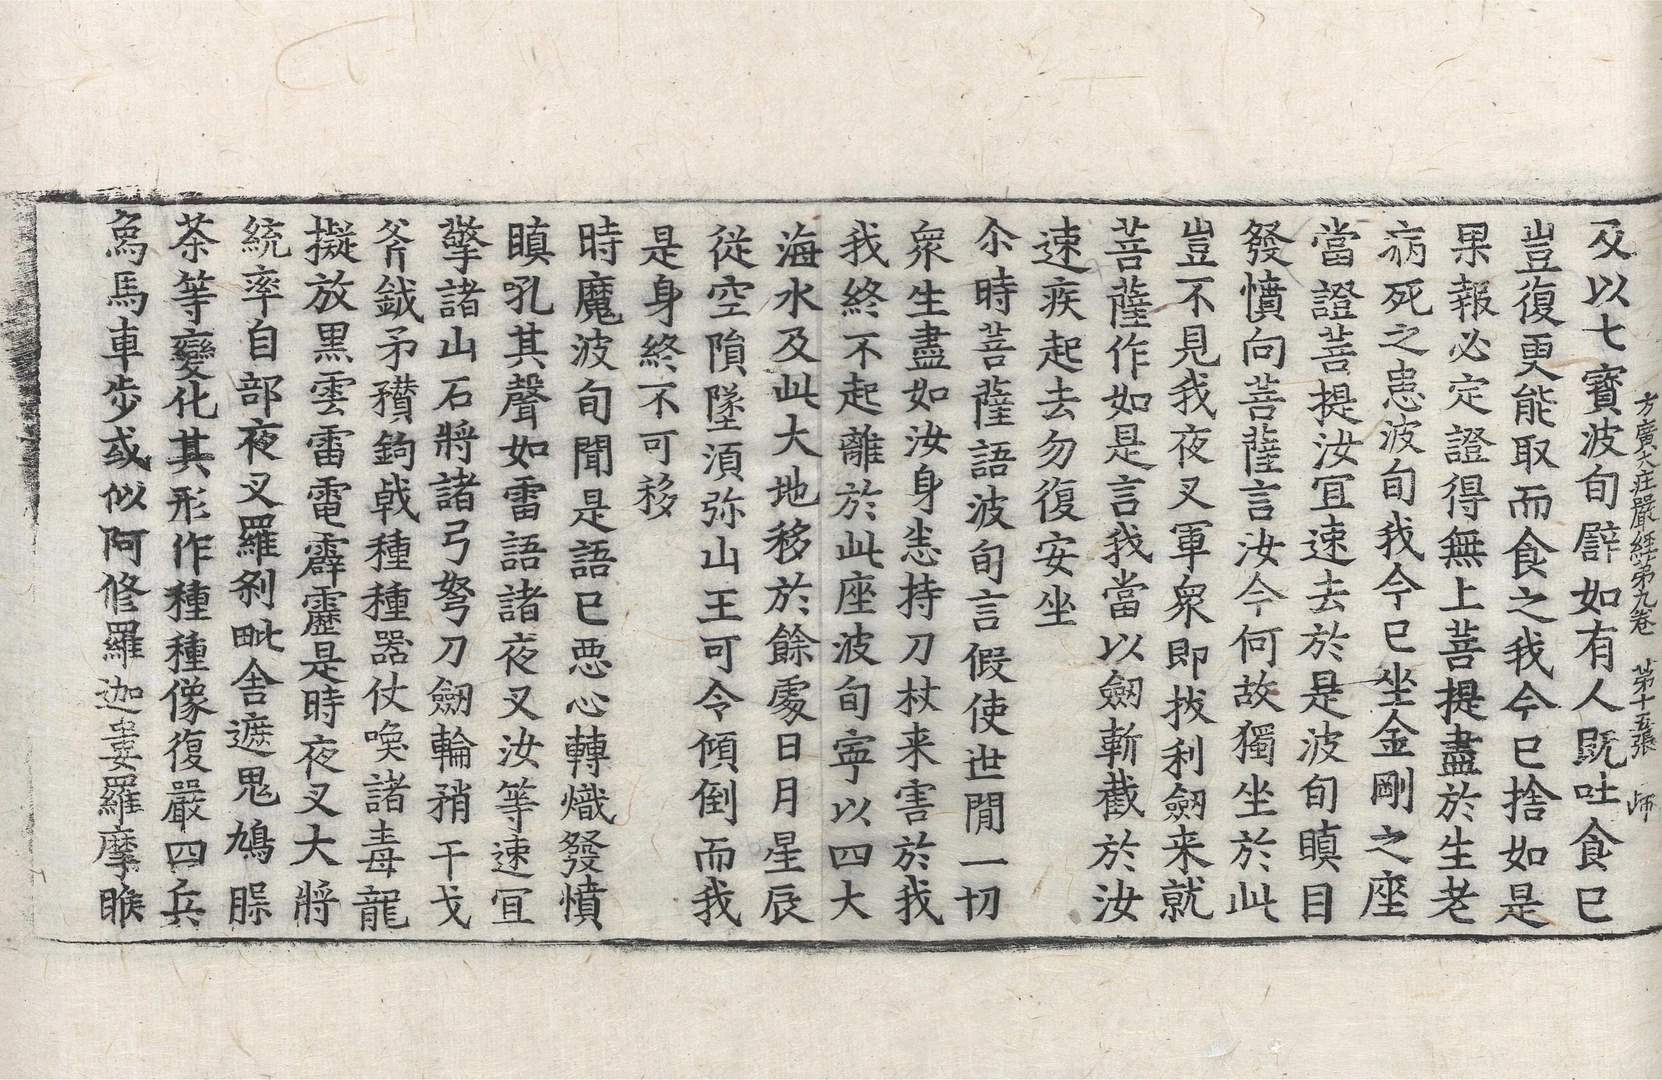 方廣大莊嚴經第九卷 第十五張 師
及以七寳波旬譬如有人旣吐食已
豈復更能取而食之我今已捨如是
果報必定證得無上菩提盡於生老
病死之患波旬我今已坐金剛之座
當證菩提汝宜速去於是波旬瞋目
發憤向菩薩言汝今何故獨坐於此
豈不見我夜叉軍衆即拔利劔来就
菩薩作如是言我當以劔斬截於汝
速疾起去勿復安坐
尒時菩薩語波旬言假使世間一切
衆生盡如汝身恙持刀杖来害於我
我終不起離於此座波旬寧以四大
海水及此大地移於餘處日月星辰
從空隕墜須弥山王可令傾倒而我
是身終不可移
時魔波旬聞是語已惡心轉熾發憤
瞋吼其聲如雷語諸夜叉汝等速宜
擎諸山石將諸弓弩刀劔輪矟干戈
斧鉞矛䂎鉤戟種種器仗喚諸毒龍
擬放黑雲雷電霹靂是時夜叉大將
統率自部夜叉羅刹毗舍遮鬼鳩腺
荼等變化其形作種種像復嚴四兵
烏馬車步或似阿修羅迦婁羅摩睺